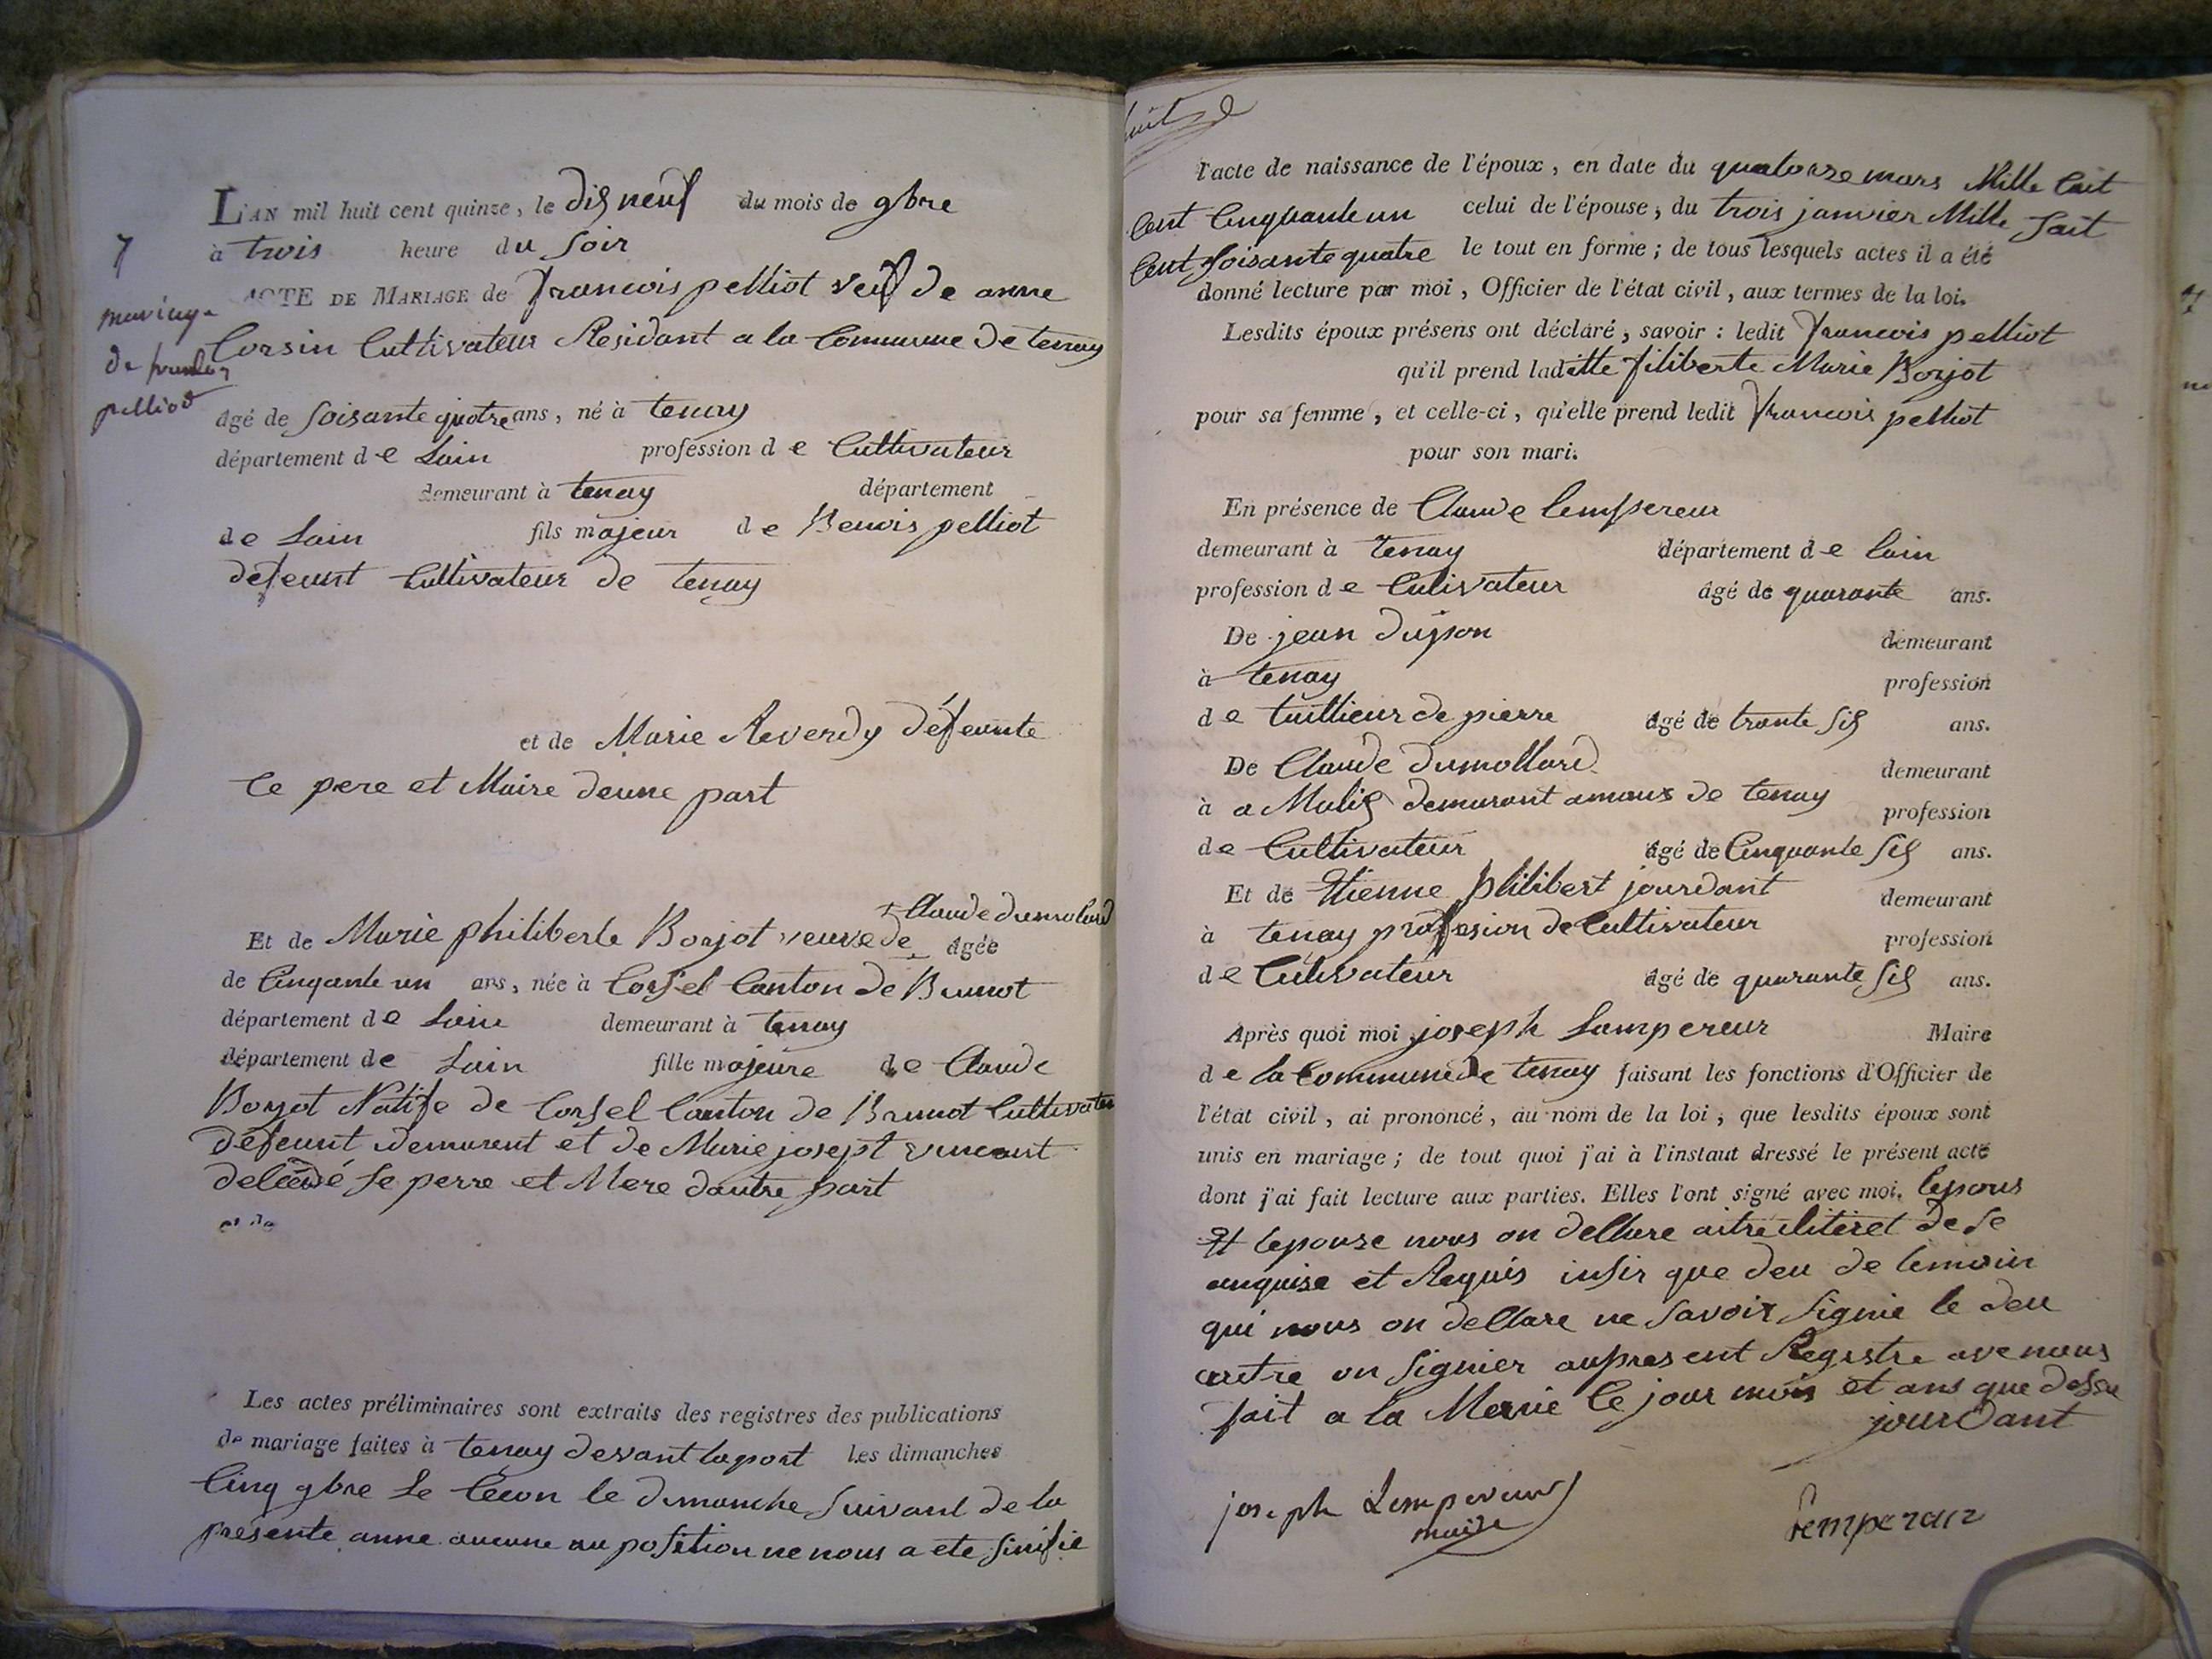 L'AN mil huit cent quinze, le dis neuf du mois de 9bre
à trois heure du soir
7
mariage
de
pelliot
ACTE DE MARIAGE de francois pelliot veuf de anne
Corsin Cultivateur Residant a la Commune de tenay
âgé de soisante quatre ans, né à tenay
département de Lain profession de Cultivateur
demeurant à tenay département
de Lain fils majeur de Benois pelliot
defeunt Cultivateur de tenay
et de Marie Reverdy défeunte
Ce pere et Maire deune part
Et de Marie philiberte Borjot veuve de + Claude dumolard âgée
de Cinqante un ans, née à Corsel Canton de Brunot
département de Lain demeurant à tenay
département de Lain fille majeure de Claude
Borjot Natife de Corsel Canton de Brunot Cultivateur
défeunt demurent et de Marie josept vincent
deléedé se perre et Mere dautre part
et de
Les actes préliminaires sont extraits des registres des publications
de mariage faites à tenay devant la port les dimanches
Cinq 9bre Le Cecon le dimanche suivant de la
présente anne aucune au position ne nous a ete sinifie
huit
l'acte de naissance de l'époux, en date du quatorze mars Mille Cait
Cent Cinquante un celui de l'épouse, du trois janvier Mille sait
Cent soisante quatre le tout en forme; de tous lesquels actes il a été
donné lecture par moi, Officier de l'état civil, aux termes de la loi.
Lesdits époux présens ont déclaré, savoir : ledit francois pelliot
qu'il prend laditte filiberte Marie Borjot
pour sa femme, et celle-ci, qu'elle prend ledit francois pelliot
pour son mari.
En présence de Claude lempereur
demeurant à tenay département de lain
profession de Culivateur âgé de quarante ans.
De jean dujson demeurant
à tenay profession
de taillieur de pierre âgé de trante sis ans.
De Claude dumollard demeurant
à a Malis demurant amaux de tenay profession
de Cultivateur âgé de Cinquante sis ans.
Et de Etienne philibert jourdant demeurant
à tenay profesion de Cultivateur profession
de Culivateur âgé de quarante sis ans.
Après quoi moi joseph Lampereur Maire
de la Commune de tenay faisant les fonctions d'Officier de
l'état civil, ai prononcé, au nom de la loi, que lesdits époux sont
unis en mariage; de tout quoi j'ai à l'instaut dressé le présent acte
dont j'ai fait lecture aux parties. Elles l'ont signé avec moi. lepous
et lepouse nous on dellare aitre iliteret de se
anquise et Requis insir que deu de temoin
qui nous on dellare ne savoir signie le deu
autre on signier aupresent Regsstre ave nous
fait a la Merie Ce jour mois et ans que dessu
jourdant
joseph Lempereur
maire
Lemperair